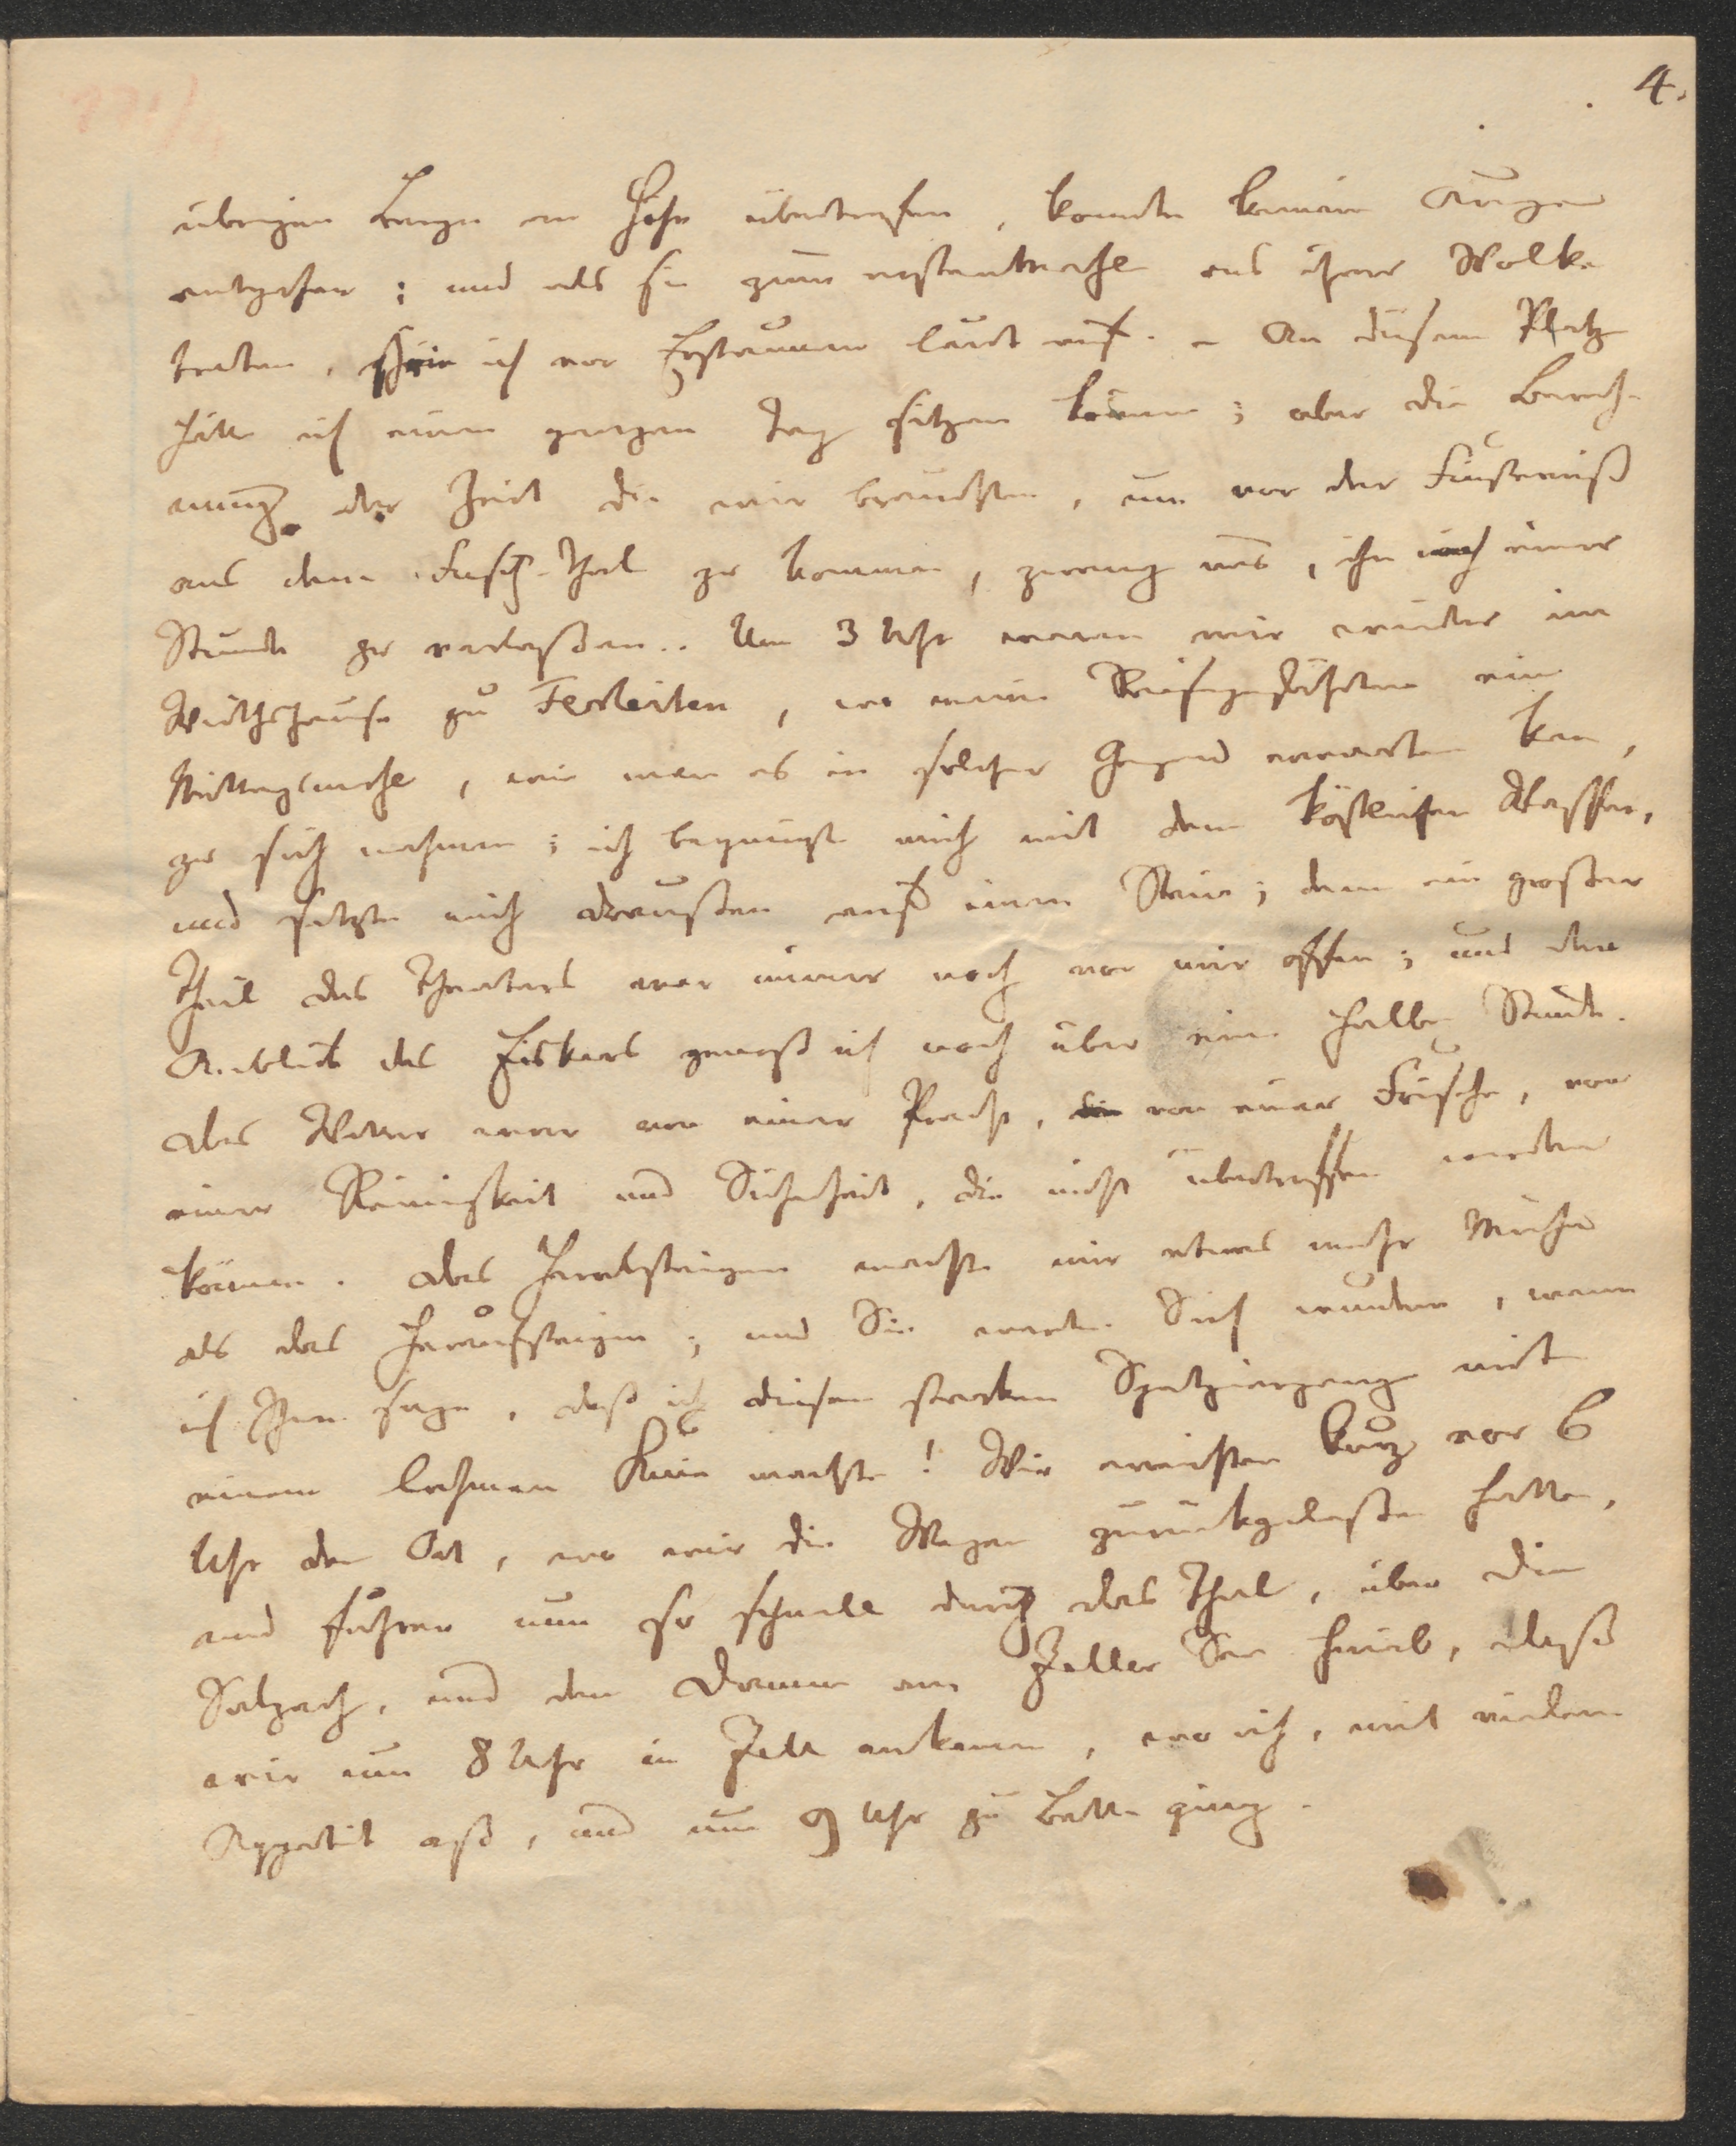 4.
übrigen Berge an Höhe übertrafen, konnte keinen Augen
entgehen; und als sie zum erstenmahle aus ihrer Wolke
traten, schrie ich vor Erstaunen laut auf. – An diesem Platz
hätte ich einen ganzen Tag sitzen können; aber die Berech-
nung der Zeit die wir brauchten, um vor der Finsterniß
aus dem Fusch-Thal zu kommen, zwang uns, ihn nach einer
Stunde zu verlaßen.. Um 3 Uhr waren wir wieder im
Wirthshause zu Ferleiten, wo meine Reisegefährten ein
Mittagsmahl, wie man es in solcher Gegend erwarten kan,
zu sich nahmen; ich begnügte mich mit dem köstlichen Wasser,
und setzte mich draußen auf einen Stein; denn ein großer
Theil des Theaters war immer noch vor mir offen; und den
Anblick des Fiskars genoß ich noch über eine halbe Stunde.
Das Wetter war von einer Pracht, von einer Frische, von
einer Reinigkeit und Sicherheit, die nicht übertroffen werden
können. Das Herabsteigen machte mir etwas mehr Mühe
als das Heraufsteigen; und Sie werden Sich wundern, wenn
ich Ihnen sage, daß ich diesen starken Spatziergang mit
einem lahmen Knie machte! Wir erreichten kurz vor 6
Uhr den Ort, wo wir die Wagen zurückgelaßen hatten,
und fuhren nun so schnell durch das Thal, über die
Salzach, und den Damm am Zeller See hinab, daß
wir um 8 Uhr in Zell ankamen, wo ich, mit vielem
Appetit aß, und um 9 Uhr zu Bette ging.